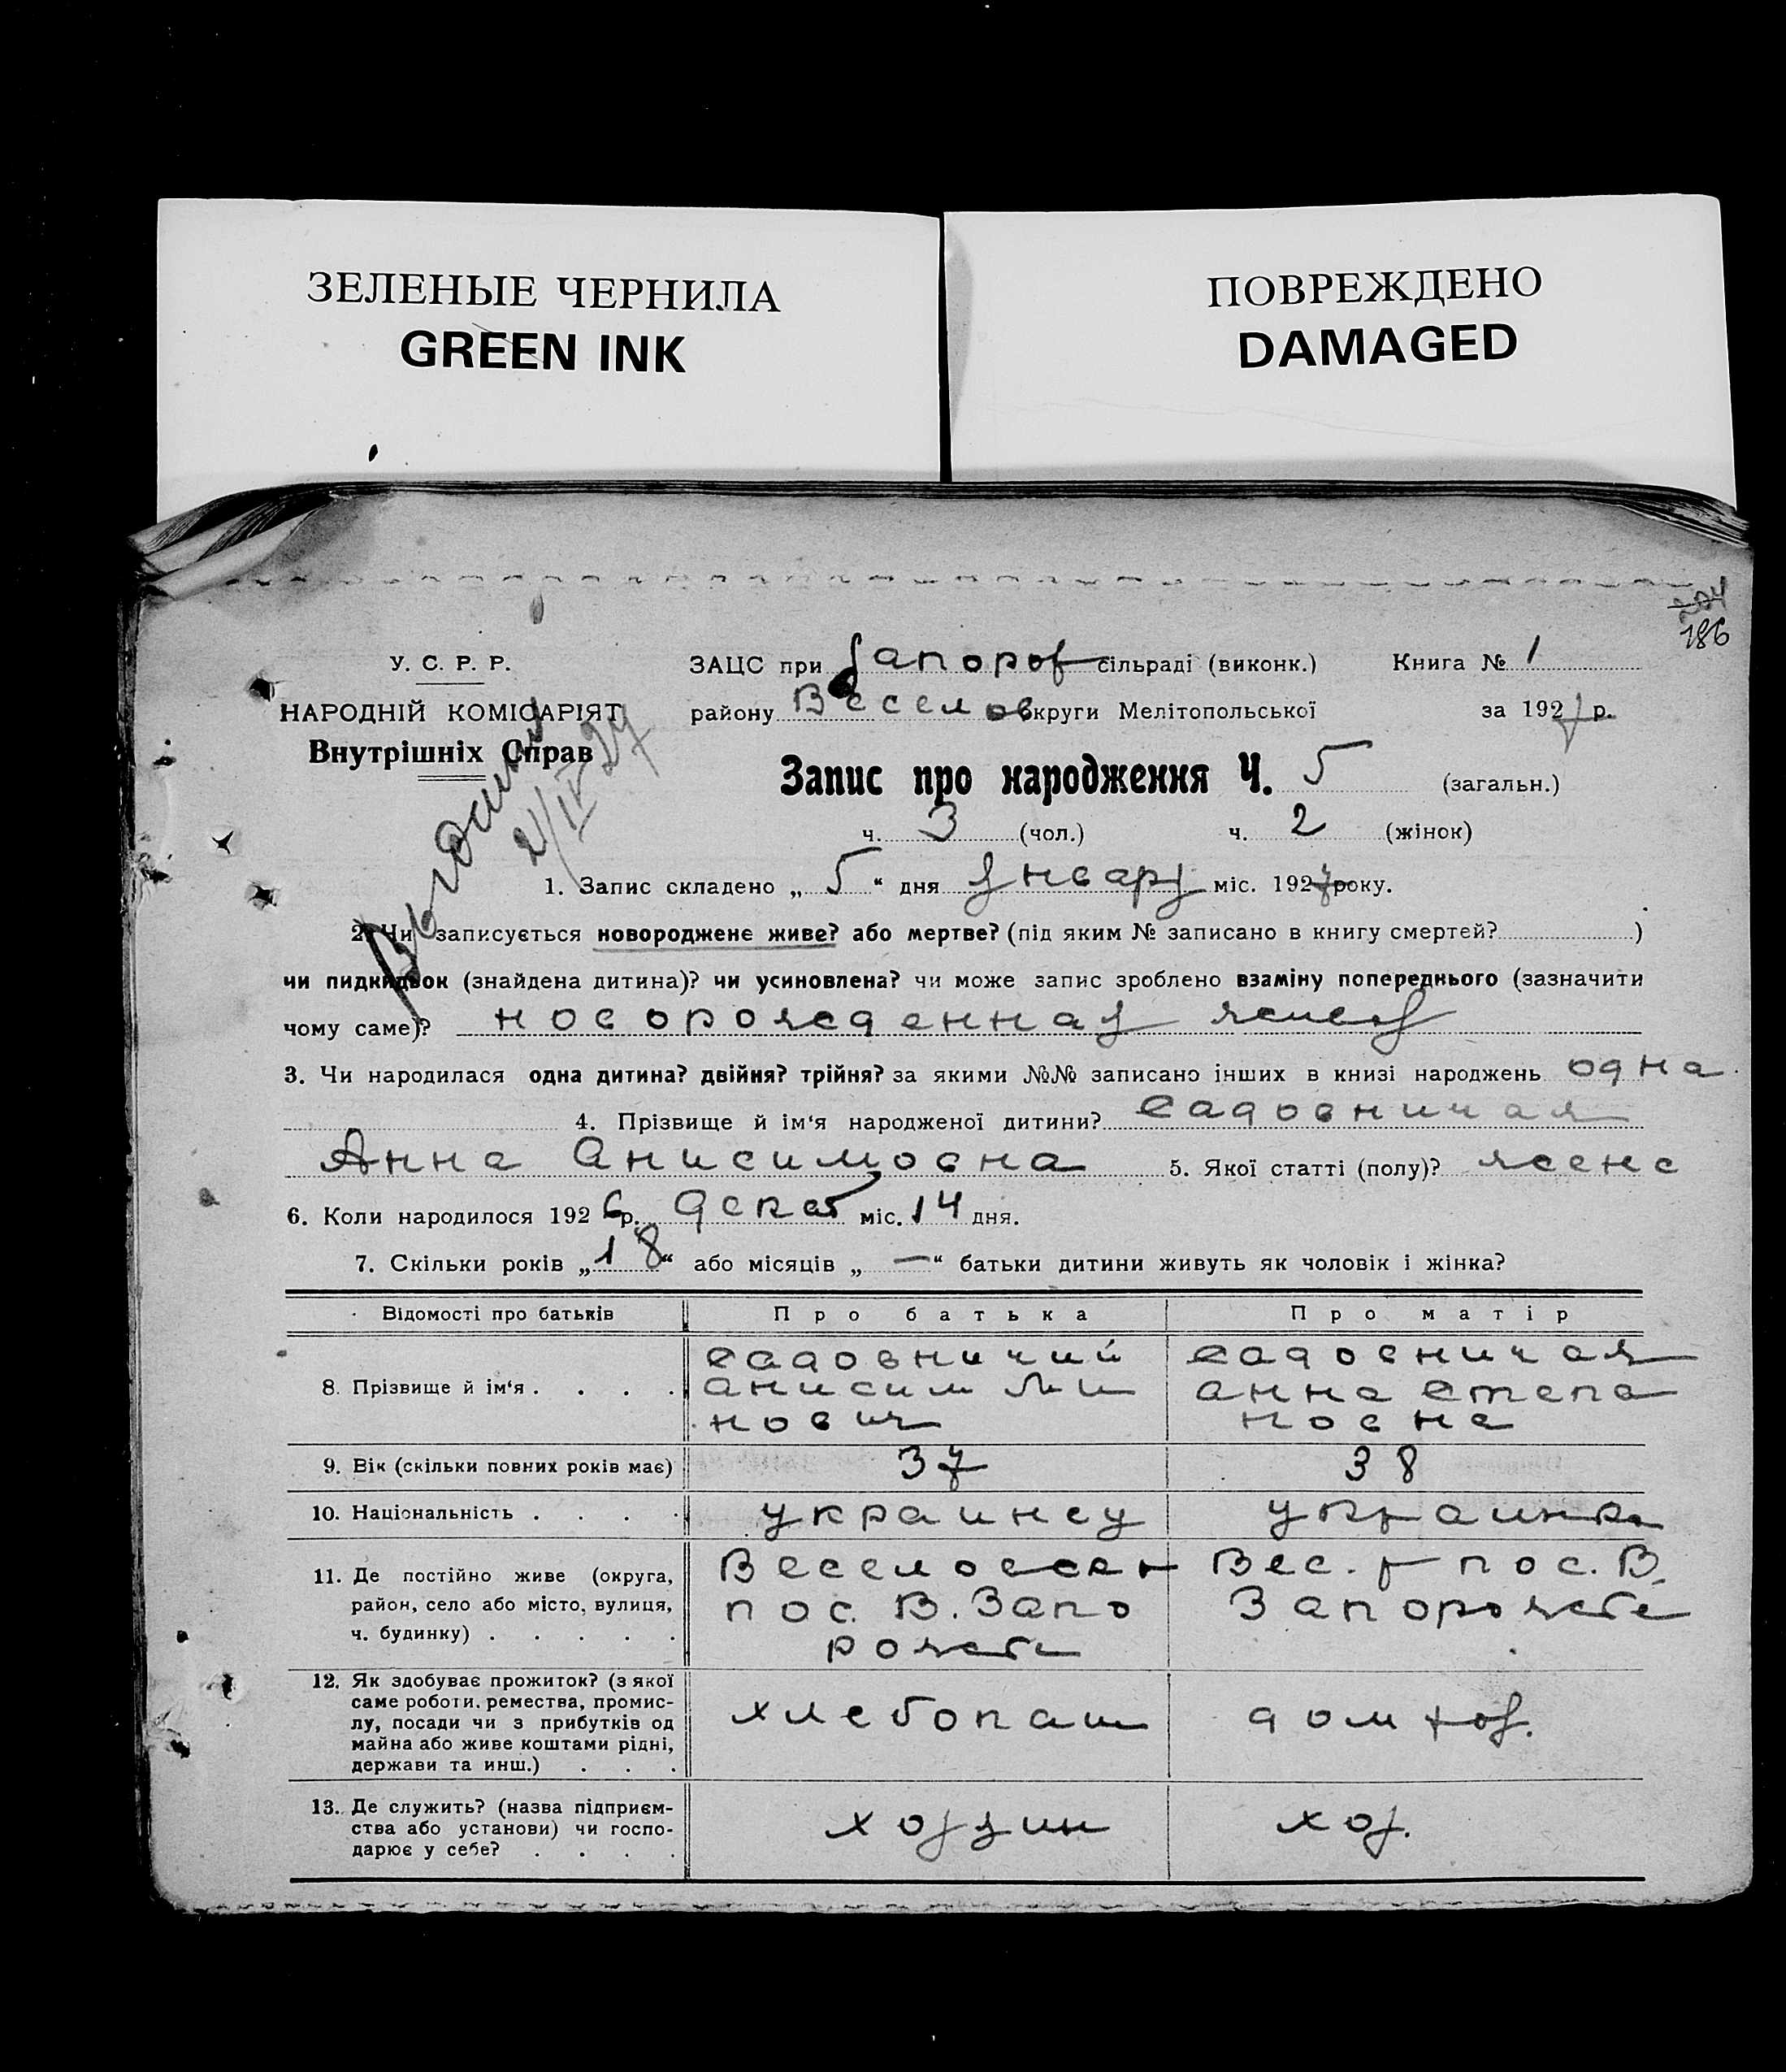 ЗЕЛЕНЫЕ ЧЕРНИЛА
GREEN INK
ПОВРЕЖДЕНО
DAMAGED
204
186
У. С. Р. Р.
НАРОДНІЙ КОМІСАРІЯТ
Внутрішніх Справ
2/IV 27
ЗАЦС при Запорож сільраді (виконк.) Книга № 1
району Веселов округи Мелітопольської за 1927 р.
Запис про народження Ч. 5 (загальн.)
ч. 3 (чол.) ч. 2 (жінок)
1. Запис складено „ 5 “ дня января міс. 1927 року.
2. Чи записується новороджене живе? або мертве? (під яким № записано в книгу смертей? )
чи пидкидьок (знайдена дитина)? чи усиновлена? чи може запис зроблено взаміну попереднього (зазначити
чому саме)? новорожденная живой
3. Чи народилася одна дитина? двійня? трійня? за якими №№ записано інших в книзі народжень одна
4. Прізвище й ім‘я народженої дитини? Садовничая
Анна Анисимовна 5. Якої статті (полу)? женс
6. Коли народилося 1926 р. декаб міс. 14 дня.
7. Скільки років „ 18 “ або місяців „ — “ батьки дитини живуть як чоловік і жінка?
Відомості про батьків Про батька Про матір
8. Прізвище й ім‘я . . . . Садовничий Анисим Ми нович Садовничая Анна Степа новна
9. Вік (скільки повних років має) 37 38
10. Національність . . . . украинец украинка
11. Де постійно живе (округа, район, село або місто, вулиця, ч. будинку) . . . . . Веселовск р пос. В. Запо рожье Вес. р пос. В. Запорожье
12. Як здобуває прожиток? (з якої саме роботи, ремества, промислу, посади чи з прибутків од майна або живе коштами рідні, держави та инш.) . . . хлебопаш дом хоз.
13. Де служить? (назва підприємства або установи) чи господарює у себе? . . . . хозяин хоз.